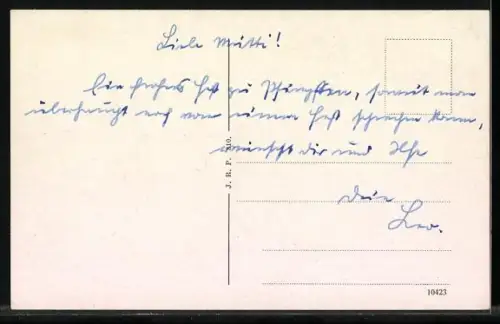 Liebe Mutti!
Ein frohes Fest zu Pfingsten, soweit man
überhaupt noch von einem Fest sprechen kann,
wünscht dir und Ilse
Dein
Leo.
J. R. P. 210.
10423